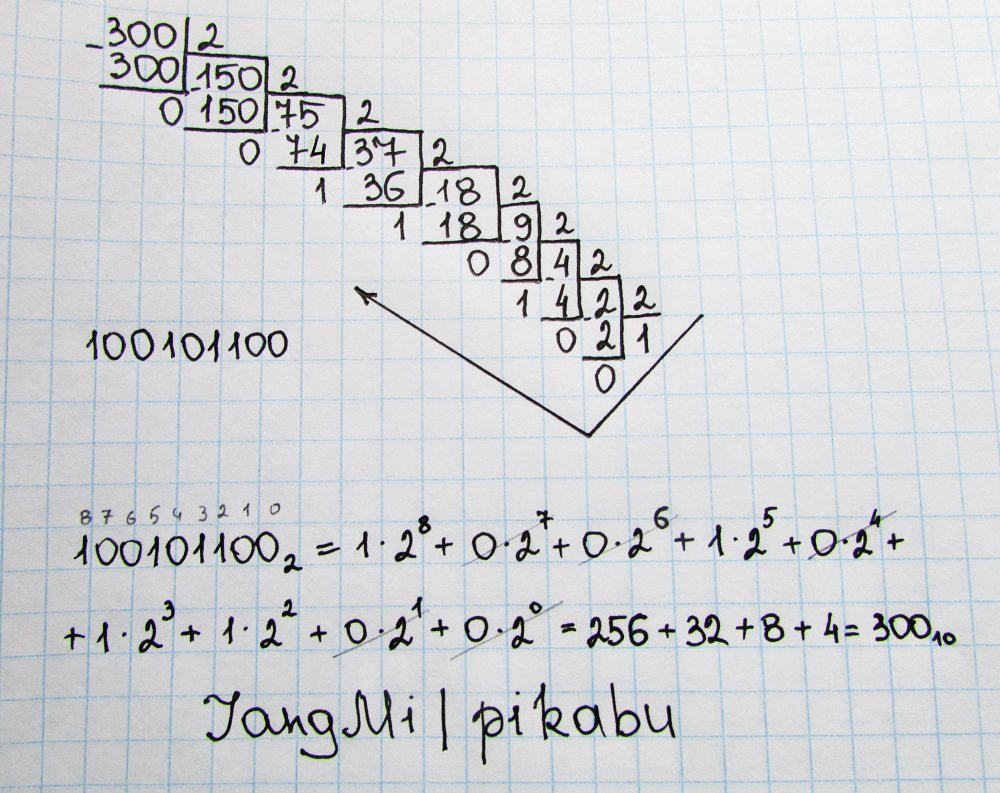 -300 2
300 -150 2
0 150 -75 2
0 74 -37 2
1 36 -18 2
1 18 -9 2
0 8 -4 2
1 4 -2 2
0 2 1
0
100101100
8 7 6 5 4 3 2 1 0
100101100₂ = 1·2⁸ + 0·2⁷ + 0·2⁶ + 1·2⁵ + 0·2⁴ +
+ 1·2³ + 1·2² + 0·2¹ + 0·2⁰ = 256 + 32 + 8 + 4 = 300₁₀
YangMi | pikabu